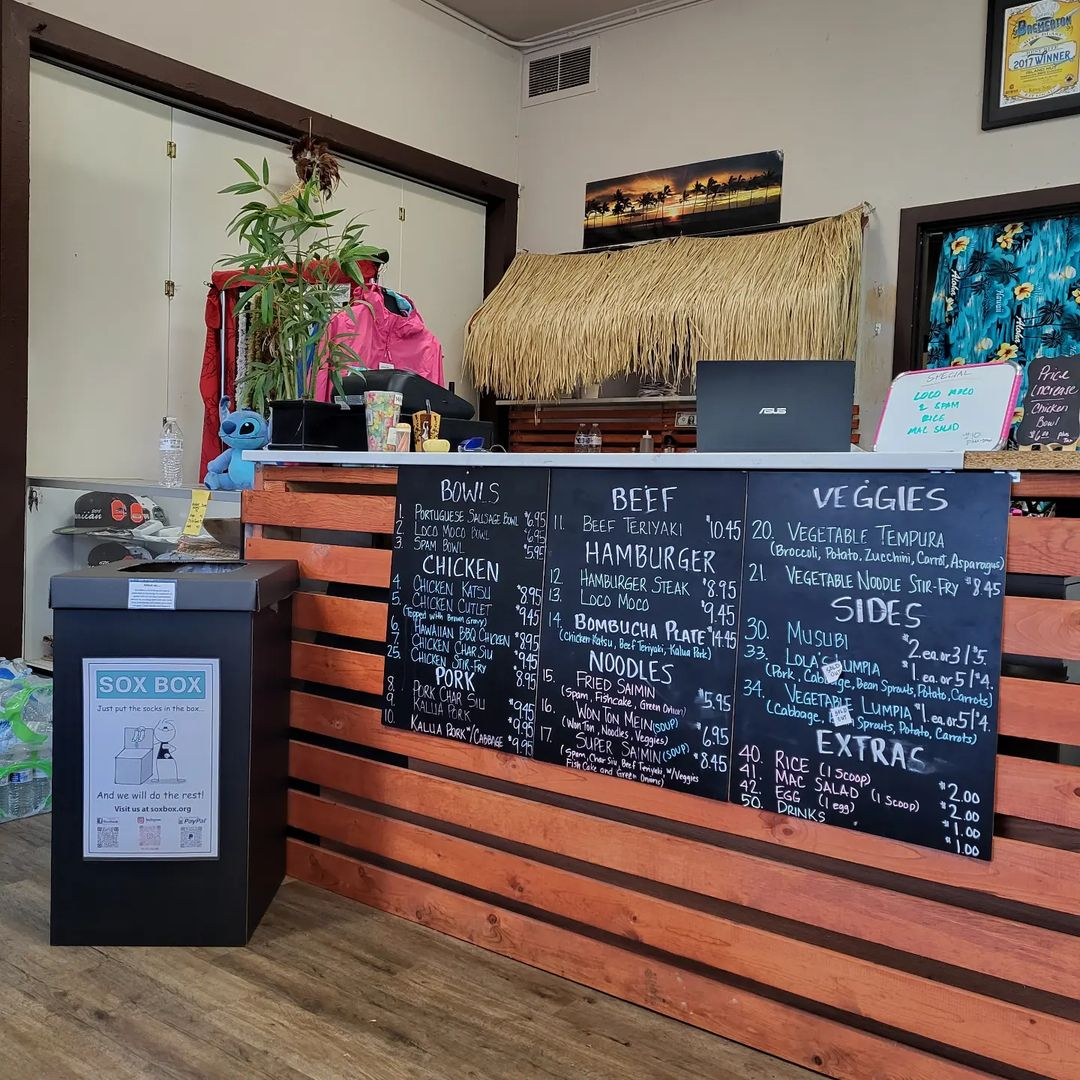 BREMERTON
2017 WINNER
Aloha
Hawaii
Aloha
SPECIAL
LOCO MOCO
2 SPAM
RICE
MAC SALAD
Price
Increase
Chicken
Bowl
ASUS
BOWLS
1. PORTUGUESE SAUSAGE BOWL $6.95
2. LOCO MOCO BOWL $6.95
3. SPAM BOWL $5.95
CHICKEN
4. CHICKEN KATSU $8.95
5. CHICKEN CUTLET $9.45
(Topped with Brown Gravy)
6. HAWAIIAN BBQ CHICKEN $8.95
7. CHICKEN CHAR SIU $9.45
25. CHICKEN STIR-FRY $8.95
PORK
8. PORK CHAR SIU $9.45
9. KALUA PORK $9.45
10. KALUA PORK W/CABBAGE $9.95
BEEF
11. BEEF TERIYAKI $10.45
HAMBURGER
12. HAMBURGER STEAK $8.95
13. LOCO MOCO $9.45
14. BOMBUCHA PLATE $14.45
(Chicken Katsu, Beef Teriyaki, Kalua Pork)
NOODLES
15. FRIED SAIMIN $5.95
(Spam, Fishcake, Green Onion)
16. WON TON MEIN (SOUP) $6.95
(Won Ton, Noodles, Veggies)
17. SUPER SAIMIN (SOUP) $8.45
(Spam, Char Siu, Beef Teriyaki, w/Veggies
Fish Cake and Green Onions)
VEGGIES
20. VEGETABLE TEMPURA
(Broccoli, Potato, Zucchini, Carrot, Asparagus)
21. VEGETABLE NOODLE STIR-FRY $8.45
SIDES
30. MUSUBI $2.ea. or 3/$5.
33. LOLA'S LUMPIA $1. ea. or 5/$4.
(Pork, Cabbage, Bean Sprouts, Potato, Carrots)
34. VEGETABLE LUMPIA $1. ea. or 5/$4.
(Cabbage, Sprouts, Potato, Carrots)
EXTRAS
40. RICE (1 SCOOP) $2.00
41. MAC SALAD (1 SCOOP) $2.00
42. EGG (1 egg) $1.00
50. DRINKS $1.00
SOX BOX
Just put the socks in the box...
And we will do the rest!
Visit us at soxbox.org
facebook
Instagram
PayPal